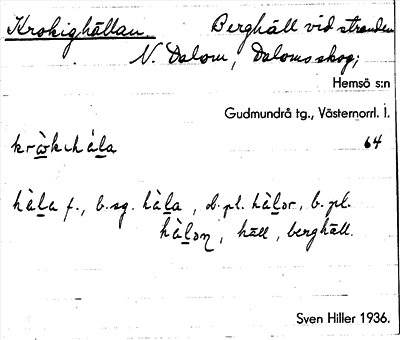 Krokighällan. Berghäll vid stranden
N. Dalom, Daloms skog;
Hemsö s:n
Gudmundrå tg., Västernorrl. l.
64
hàla f., b.sg. hàla, ob.pl. hàlor, b.pl.
hàlon, häll, berghäll.
Sven Hiller 1936.